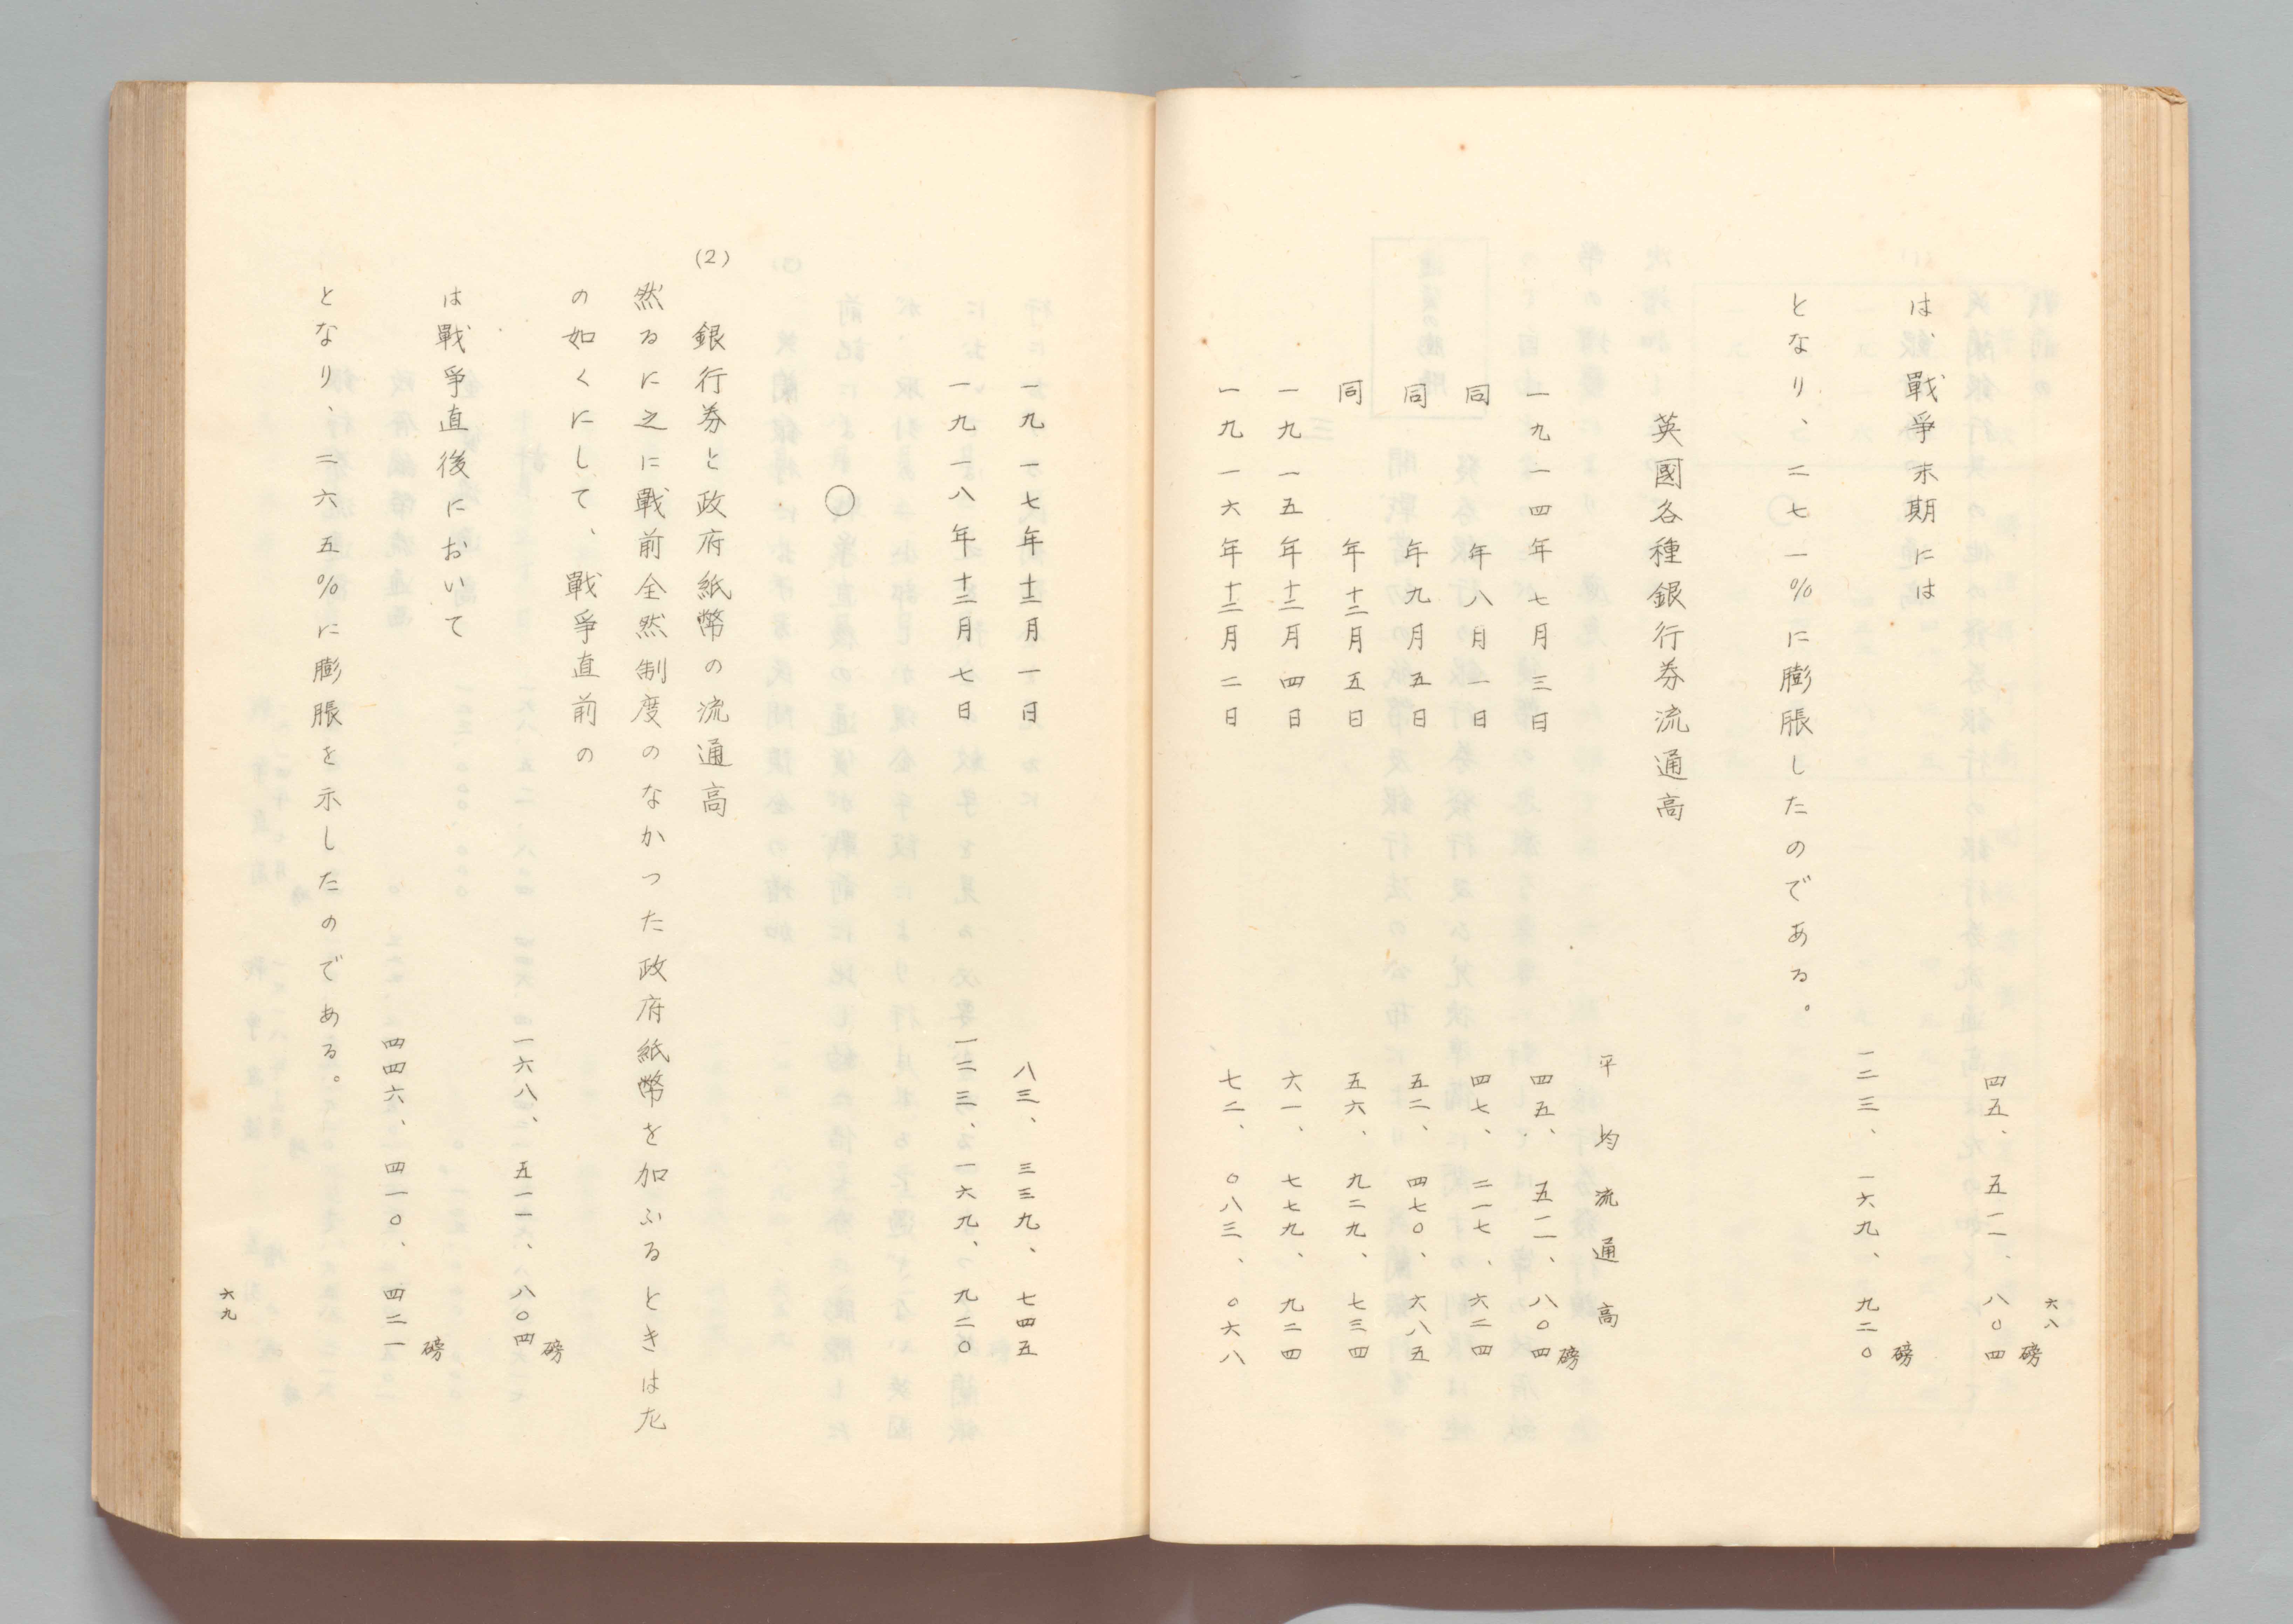 六八
四五、五一一、八〇四磅
は、戰爭末期には
一二三、一六九、九二〇磅
となり、二七一%に膨脹したのである。
英國各種銀行券流通高
平均流通高
一九一四年七月三日 四五、五一一、八〇四磅
同 年八月一日 四七、二一七、六二四
同 年九月五日 五二、四七〇、六八五
同 年十二月五日 五六、九二九、七三四
一九一五年十二月四日 六一、七七九、九二四
一九一六年十二月二日 七二、〇八三、〇六八
一九一七年十二月一日 八三、三三九、七四五
一九一八年十二月七日 一二三、一六九、九二〇
○
(2) 銀行券と政府紙幣の流通高
然るに之に戰前全然制度のなかった政府紙幣を加ふるときは左
の如くにして、戰爭直前の
一六八、五一一、八〇四磅
は戰爭直後において
四四六、四一〇、四二一磅
となり、二六五%に膨脹を示したのである。
六九